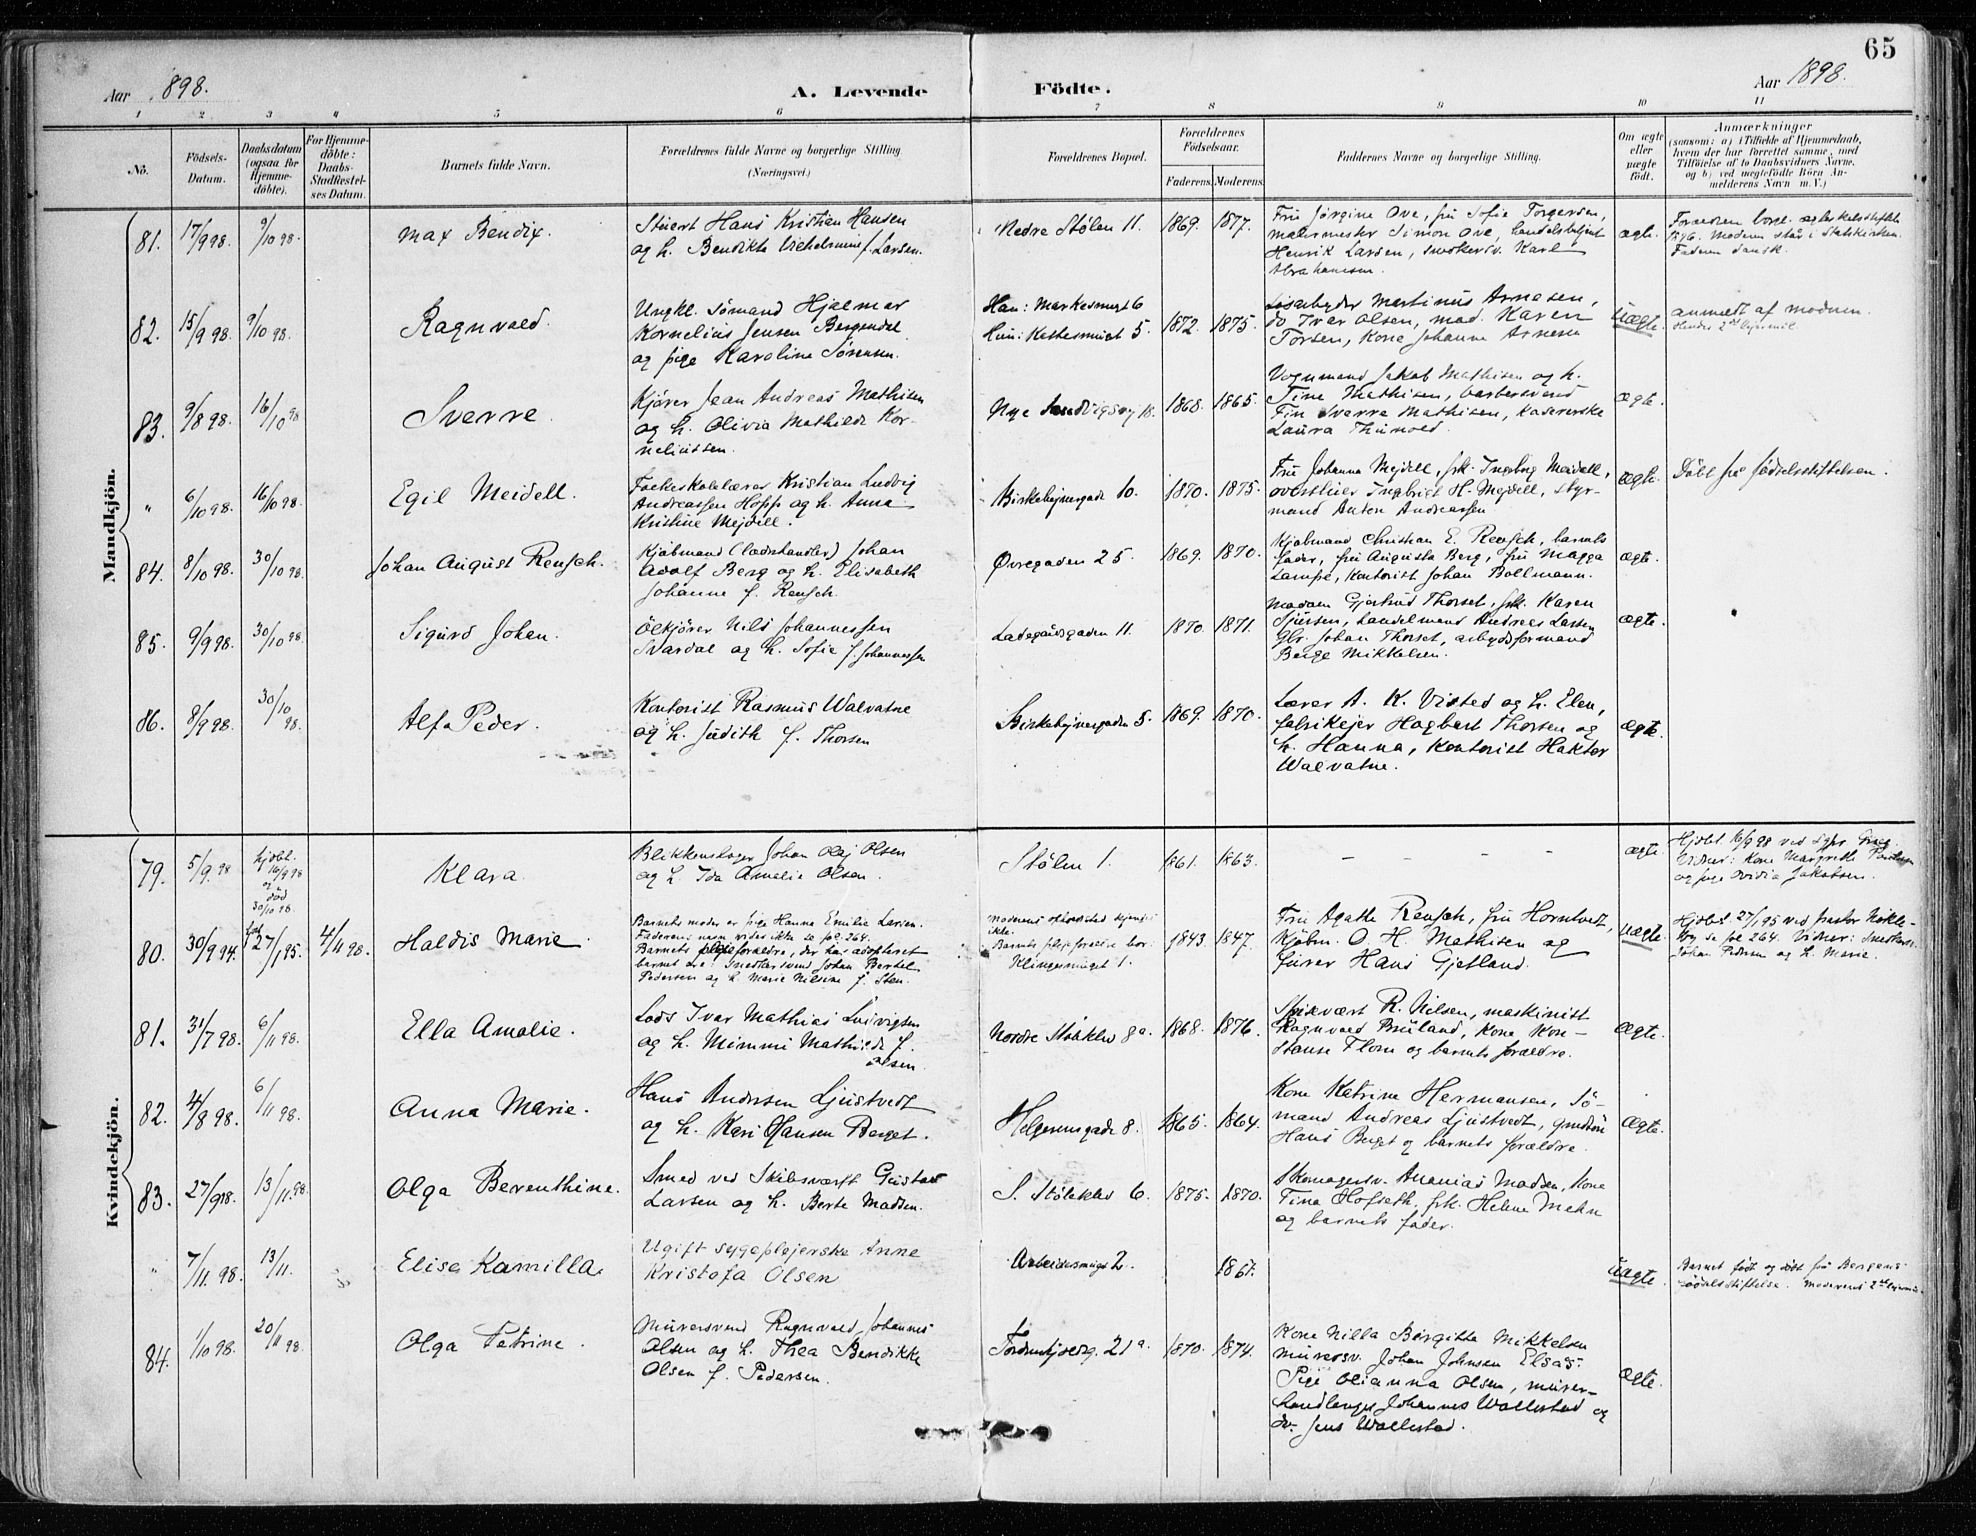 65
Aar 1898.
A. Levende
Födte.
Aar 1898.
1 2 3 4 5 6 7 8 9 10 11
No.
Födsels-Datum.
Daabsdatum (ogsaa for Hjemme-döbte).
For Hjemme-döbte: Daabs-Stadfæstel-ses Datum.
Barnets fulde Navn.
Forældrenes fulde Navne og borgerlige Stilling (Næringsvei.)
Forældrenes Bopæl.
Forældrenes Födselsaar.
Faderens. Moderens.
Faddernes Navne og borgerlige Stilling.
Om ægte eller uægte födt.
Anmærkninger
(saasom: a) i Tilfælde af Hjemmedaab,
hvem der har forrettet samme, med
Tilföielse af to Daabsvidners Navne.
og b) ved uægtefödte Börn An-
melderens Navn m. V.)
Mandkjön.
81. 17/9 98. 9/10 98. Max Bendix.
Stuert Hans Kristian Hansen
og h. Bendikte Vilhelmine f. Larsen.
Nedre Stølen 11. 1869. 1877.
Fru Jørgine Ove, fru Sofie Torgersen,
malermester Simon Ove, handelsbetjent
Henrik Larsen, snedkersv. Karl
Abrahamsen.
ægte.
Moderen står i Statskirken.
Faderen dansk.
82. 15/9 98. 9/10 98. Ragnvald.
Ungkl. sømand Hjalmar
Kornelius Jensen Bergendal
og pige Karoline Sørensen.
Han: Markesmuget 6
Hun: Kettesmuget 5. 1872. 1875.
Løsarbeyder Martinus Arnesen,
do Ivar Olsen, mad. Karen
Torsen, Kone Johanne Arnesen
Uægte.
anmeldt af moderen.
83. 9/8 98. 16/10 98 Sverre.
Kjører Jean Andreas Mathisen
og h. Olivia Mathilde Kor-
neliussen.
Nye Sandvigsvej 18. 1868. 1865.
Vognmand Jakob Mathisen og h.
Tine Mathisen, barbersvend
Finn Sverre Mathisen, Kasererske
Laura Thunold.
ægte.
" 6/10 98. 16/10 98. Egil Meidell.
Folkeskolelærer Kristian Ludvig
Andreassen Hopp og h. Anna
Kristine Mejdell.
Birkebejnergade 10. 1870. 1875.
Fru Johanna Mejdell, frk. Ingeborg Meidell,
overstuer Ingbrigt H. Mejdell, styr-
mand Anton Andreassen.
ægte.
Döbt på fødselsstiftelsen.
84. 8/10 98. 30/10 98. Johan August Rensch.
Kjøbmand (lædrhandler) Johan
Adolf Berg og h. Elisabeth
Johanne f. Rensch.
Øvregaden 25. 1869. 1870.
Kjøbmand Christian E. Rensch, barnets
fader, fru Augusta Berg, fru Magga
Lampe, Kontorist Johan Bollmann.
ægte.
85. 9/9 98. 30/10 98. Sigurd Johan.
Ølkjører Nils Johannessen
Svardal og h. Sofie f. Johannessen
Ladegårdsgaden 11. 1870. 1871.
Madam Gjertrud Thorset, frk. Karen
Sjursen, handelsmand Andreas Larsen
Gbr. Johan Thorset, arbejdsformand
Berge Mikkelsen.
ægte.
86. 8/9 98. 30/10 98. Alf Peder.
Kontorist Rasmus Walvatne
og h. Judith f. Thorsen
Birkebejnergaden 5. 1869. 1870.
Lærer A. K. Visted og h. Elen,
fabrikejer Hagbart Thorsen og
h. Hanna, Kontorist Haktor
Walvatne.
ægte.
Kvindekjön.
79. 5/9 98 hjdbt. 16/9 98 og död 30/10 98. Klara
Blikkenslager Johan Olaj Olsen
og h. Ida Amalie Olsen.
Stølen 1. 1861. 1863. - - - -
ægte.
Hjdbt 16/9 98 ved Sgpr Greeg
Vidner: Kone Margrethe
og pige Ovidia Jakobsen.
80. 30/9 94. 27/1 95. 4/11 98. Haldis Marie
Barnets moder er pige Hanna Emilie Larsen.
Faderens navn vides ikke se fol. 264.
Barnets plejeforældre, der har adopteret
barnet ere: Snedkersvend Johan Bertel
Pedersen og h. Marie Nilsine f. Sten.
Moderens opholdssted kjendes
ikke.
Barnets plejeforældre bor
Klingesmuget 1. 1843. 1847.
Fru Agathe Rensch, fru Horntvedt,
Kjøbm. O. H. Mathisen og
furer Hans Gjetland.
uægte.
Hjdbt. 27/1 95 ved pastor
se fol 264. Vidner: Snedkers.
Johan Pedersen og h. Marie.
81. 31/7 98. 6/11 98. Ella Amalie.
Lods Ivar Mathias Ludvigsen
og h. Mimmi Mathilde f.
Olsen.
Nordre Stöleklev 8a. 1868. 1876.
Spisevært R. Nilsen, maskinist
Ragnvald Bruland, Kone Kon-
stanse Flom og barnets forældre.
Ægte.
82. 4/8 98. 6/11 98. Anna Marie.
Hans Andersen Ljustvedt
og h. Kari Hansen Berget.
Helgesensgade 8. 1865. 1864.
Kone Katrine Hermansen, Sö-
mand Andreas Ljustvedt,
Hans Berget og barnets forældre.
Ægte.
83. 27/9 98. 13/11 98. Olga Berenthine.
Smed ved Skibsværft Gustav
Larsen og h. Berte Madsen.
S. Stöleklev 6. 1875. 1870.
Skomagersv. Ananias Madsen, Kone
Tina Hofseth, frk. Helene Mehn
og barnets fader.
Ægte.
" 7/11 98. 13/11. Elise Kamilla.
Ugift sygeplejerske Anne
Kristofa Olsen
Arbeidersmuget 2. 1867.
Uægte.
Barnet født og døbt på Bergens
fødselsstiftelse. Moderens 2det lejermål.
84. 1/10 98. 20/11 98. Olga Petrine.
Murersvend Ragnvald Johannes
Olsen og h. Thea Bendikke
Olsen f. Pedersen.
Tordenskjoldsg. 21a. 1870. 1874.
Kone Nilla Birgitte Mikkelsen
murersv. Johan Johnsen Elsås.
Pige Olianna Olsen, murer-
handlanger Johannes Wallestad og
do. Jens Wallestad.
Ægte.